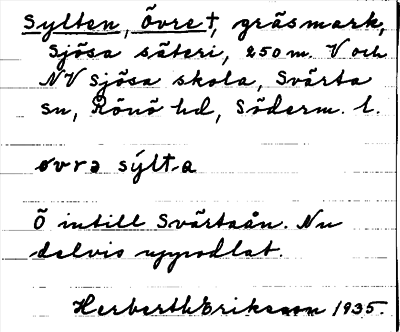 Sylten, Övre †, gräsmark,
Sjösa säteri, 250 m. V och
NV Sjösa skola, Svärta
sn, Rönö hd, Söderm. l.
øvrə sýlt-a
Ö intill Svärtaån. Nu
delvis uppodlat.
Herberth Eriksson 1935.